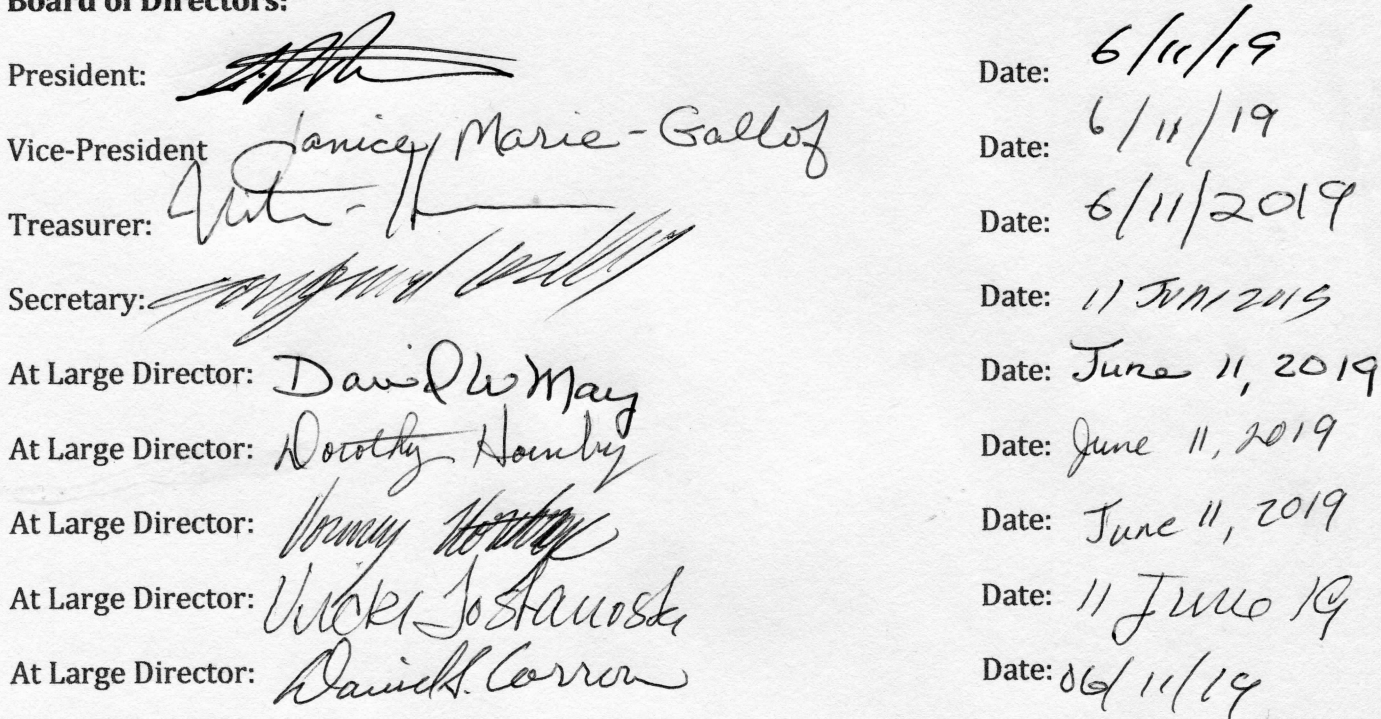 Board of Directors:
President: Date: 6/11/19
Vice-President Janice Marie-Gallof Date: 6/11/19
Treasurer: Date: 6/11/2019
Secretary: Date: 11 JUN 2019
At Large Director: David W May Date: June 11, 2019
At Large Director: Dorothy Hornby Date: June 11, 2019
At Large Director: Date: June 11, 2019
At Large Director: Vicki Date: 11 June 19
At Large Director: Daniel S. Date: 06/11/19